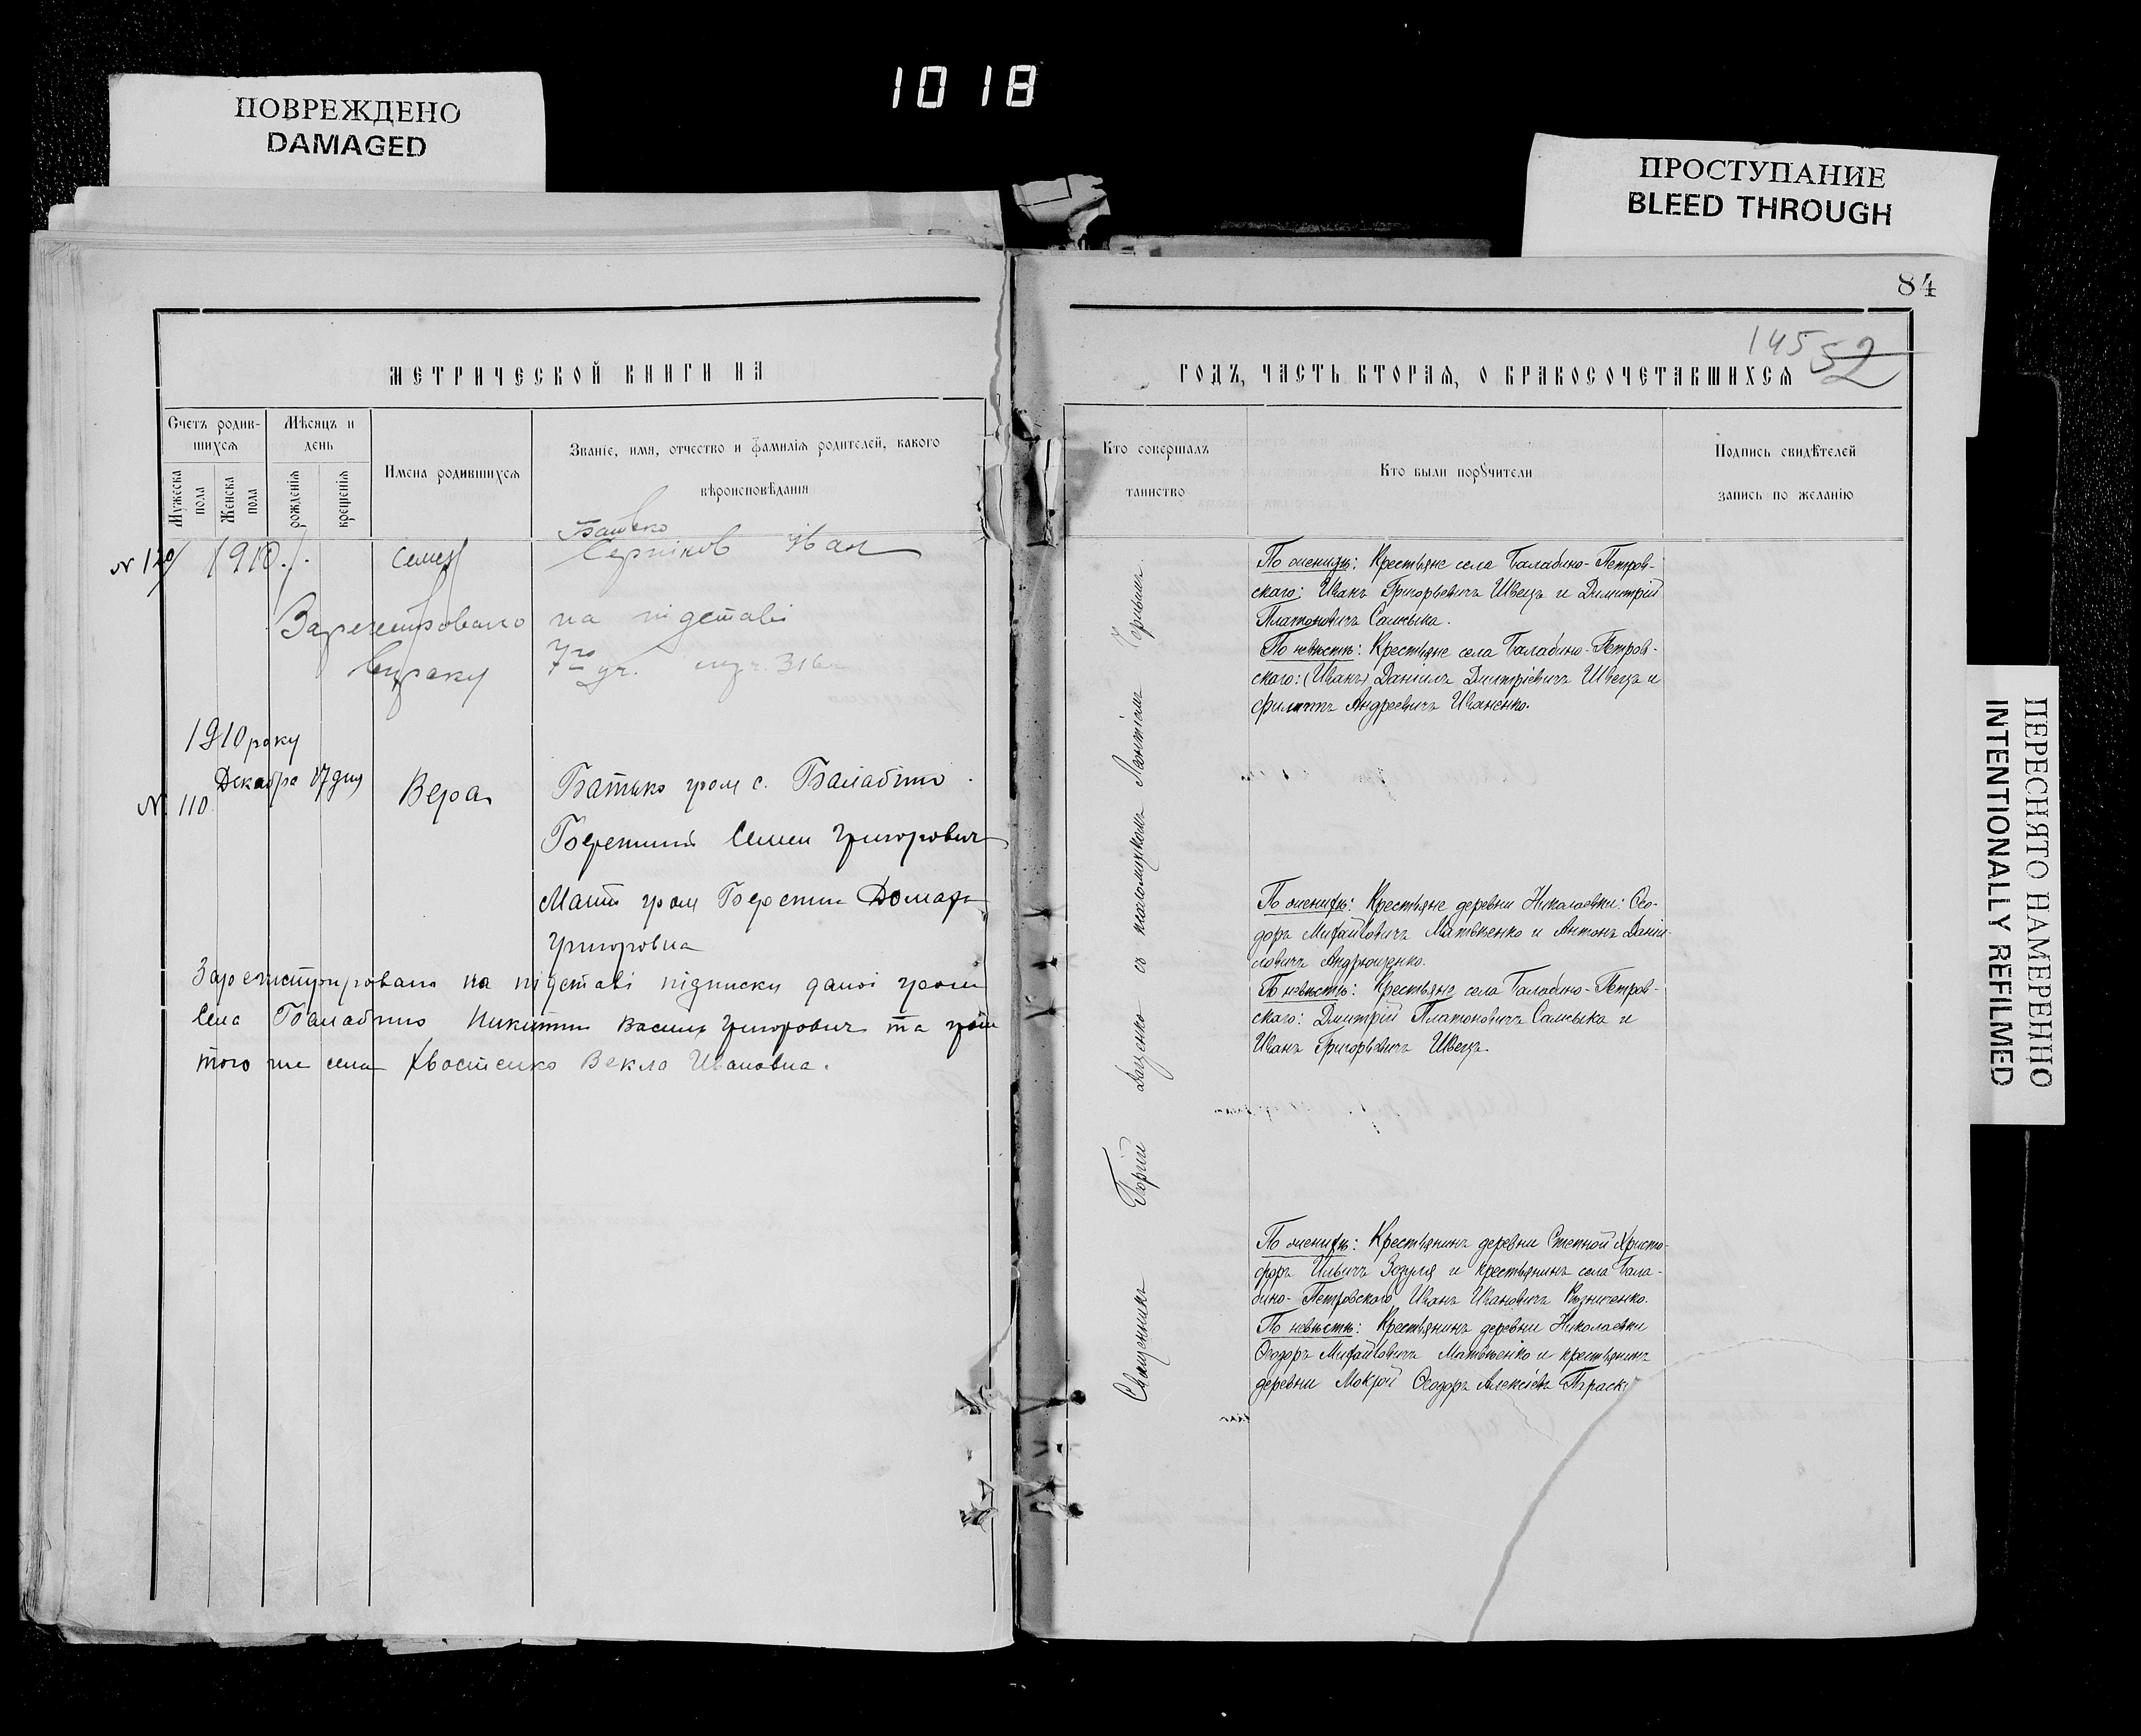 1018
ПОВРЕЖДЕНО
DAMAGED
ПРОСТУПАНИЕ
BLEED THROUGH
ПЕРЕСНЯТО НАМЕРЕННО
INTENTIONALLY REFILMED
МЕТРИЧЕСКОЙ КНИГИ НА
Счетъ родив-
шихся
Мѣсяцъ и
день
Мужеска
пола
Женска
пола
рожденія
крещенія
Имена родившихся
Званіе, имя, отчество и фамилія родителей, какого
вѣроисповѣданія
Батько
N 120 1910 Семен Іван
на підставі
1910 року
Декабря 17 дня
N. 110 Вера Батько гром с. Балабино
Семен Григорович
Мати гром
Григоровна
Зарегистрировано на підставі підписки даної гром
села Балабино Никитин Василь Григорович та гром
того же села Хвостенко Векла Ивановна.
84
145 52
ГОДЪ, ЧАСТЬ ВТОРАЯ, О БРАКОСОЧЕТАВШИХСЯ
Кто совершалъ
таинство
Кто были поручители
Подпись свидѣтелей
запись по желанію
Священникъ Даценко съ псаломщикомъ
По женихѣ: Крестьяне села Балабино-Петров-
скаго: Иванъ Григорьевичъ Швецъ и Димитрій
Платоновичъ Самсыка.
По невѣстѣ: Крестьяне села Балабино-Петров-
скаго: (Иванъ) Даніилъ Димитріевичъ Швецъ и
Филиппъ Андреевичъ Иваненко.
По женихѣ: Крестьяне деревни Николаевки: Ѳео-
доръ Михайловичъ Матвѣенко и Антонъ Даніи-
ловичъ Андрющенко.
По невѣстѣ: Крестьяне села Балабино-Петров-
скаго: Димитрій Платоновичъ Самсыка и
Иванъ Григорьевичъ Швецъ.
По женихѣ: Крестьянинъ деревни Степной Христо-
форъ Ильичъ Зозуля и крестьянинъ села Бала-
бино-Петровского Иванъ Ивановичъ Рѣзниченко.
По невѣстѣ: Крестьянинъ деревни Николаевки
Ѳеодоръ Михайловичъ Матвѣенко и крестьянинъ
деревни Мокрой Ѳеодоръ Алексѣевъ